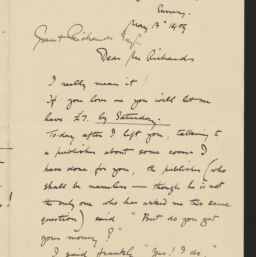 Surrey.
May 13th 1909
Grant Richards Esq.
Dear Mr Richards
I really mean it!
If you love me you will let me
have £7. by Saturday.
Today after I left you, talking to
a publisher about some covers I
have done for you, the publisher (who
shall be nameless — though he is not
the only one who has asked me this same
question) said "But do you get
your money?"
I said frankly "Yes! I do."